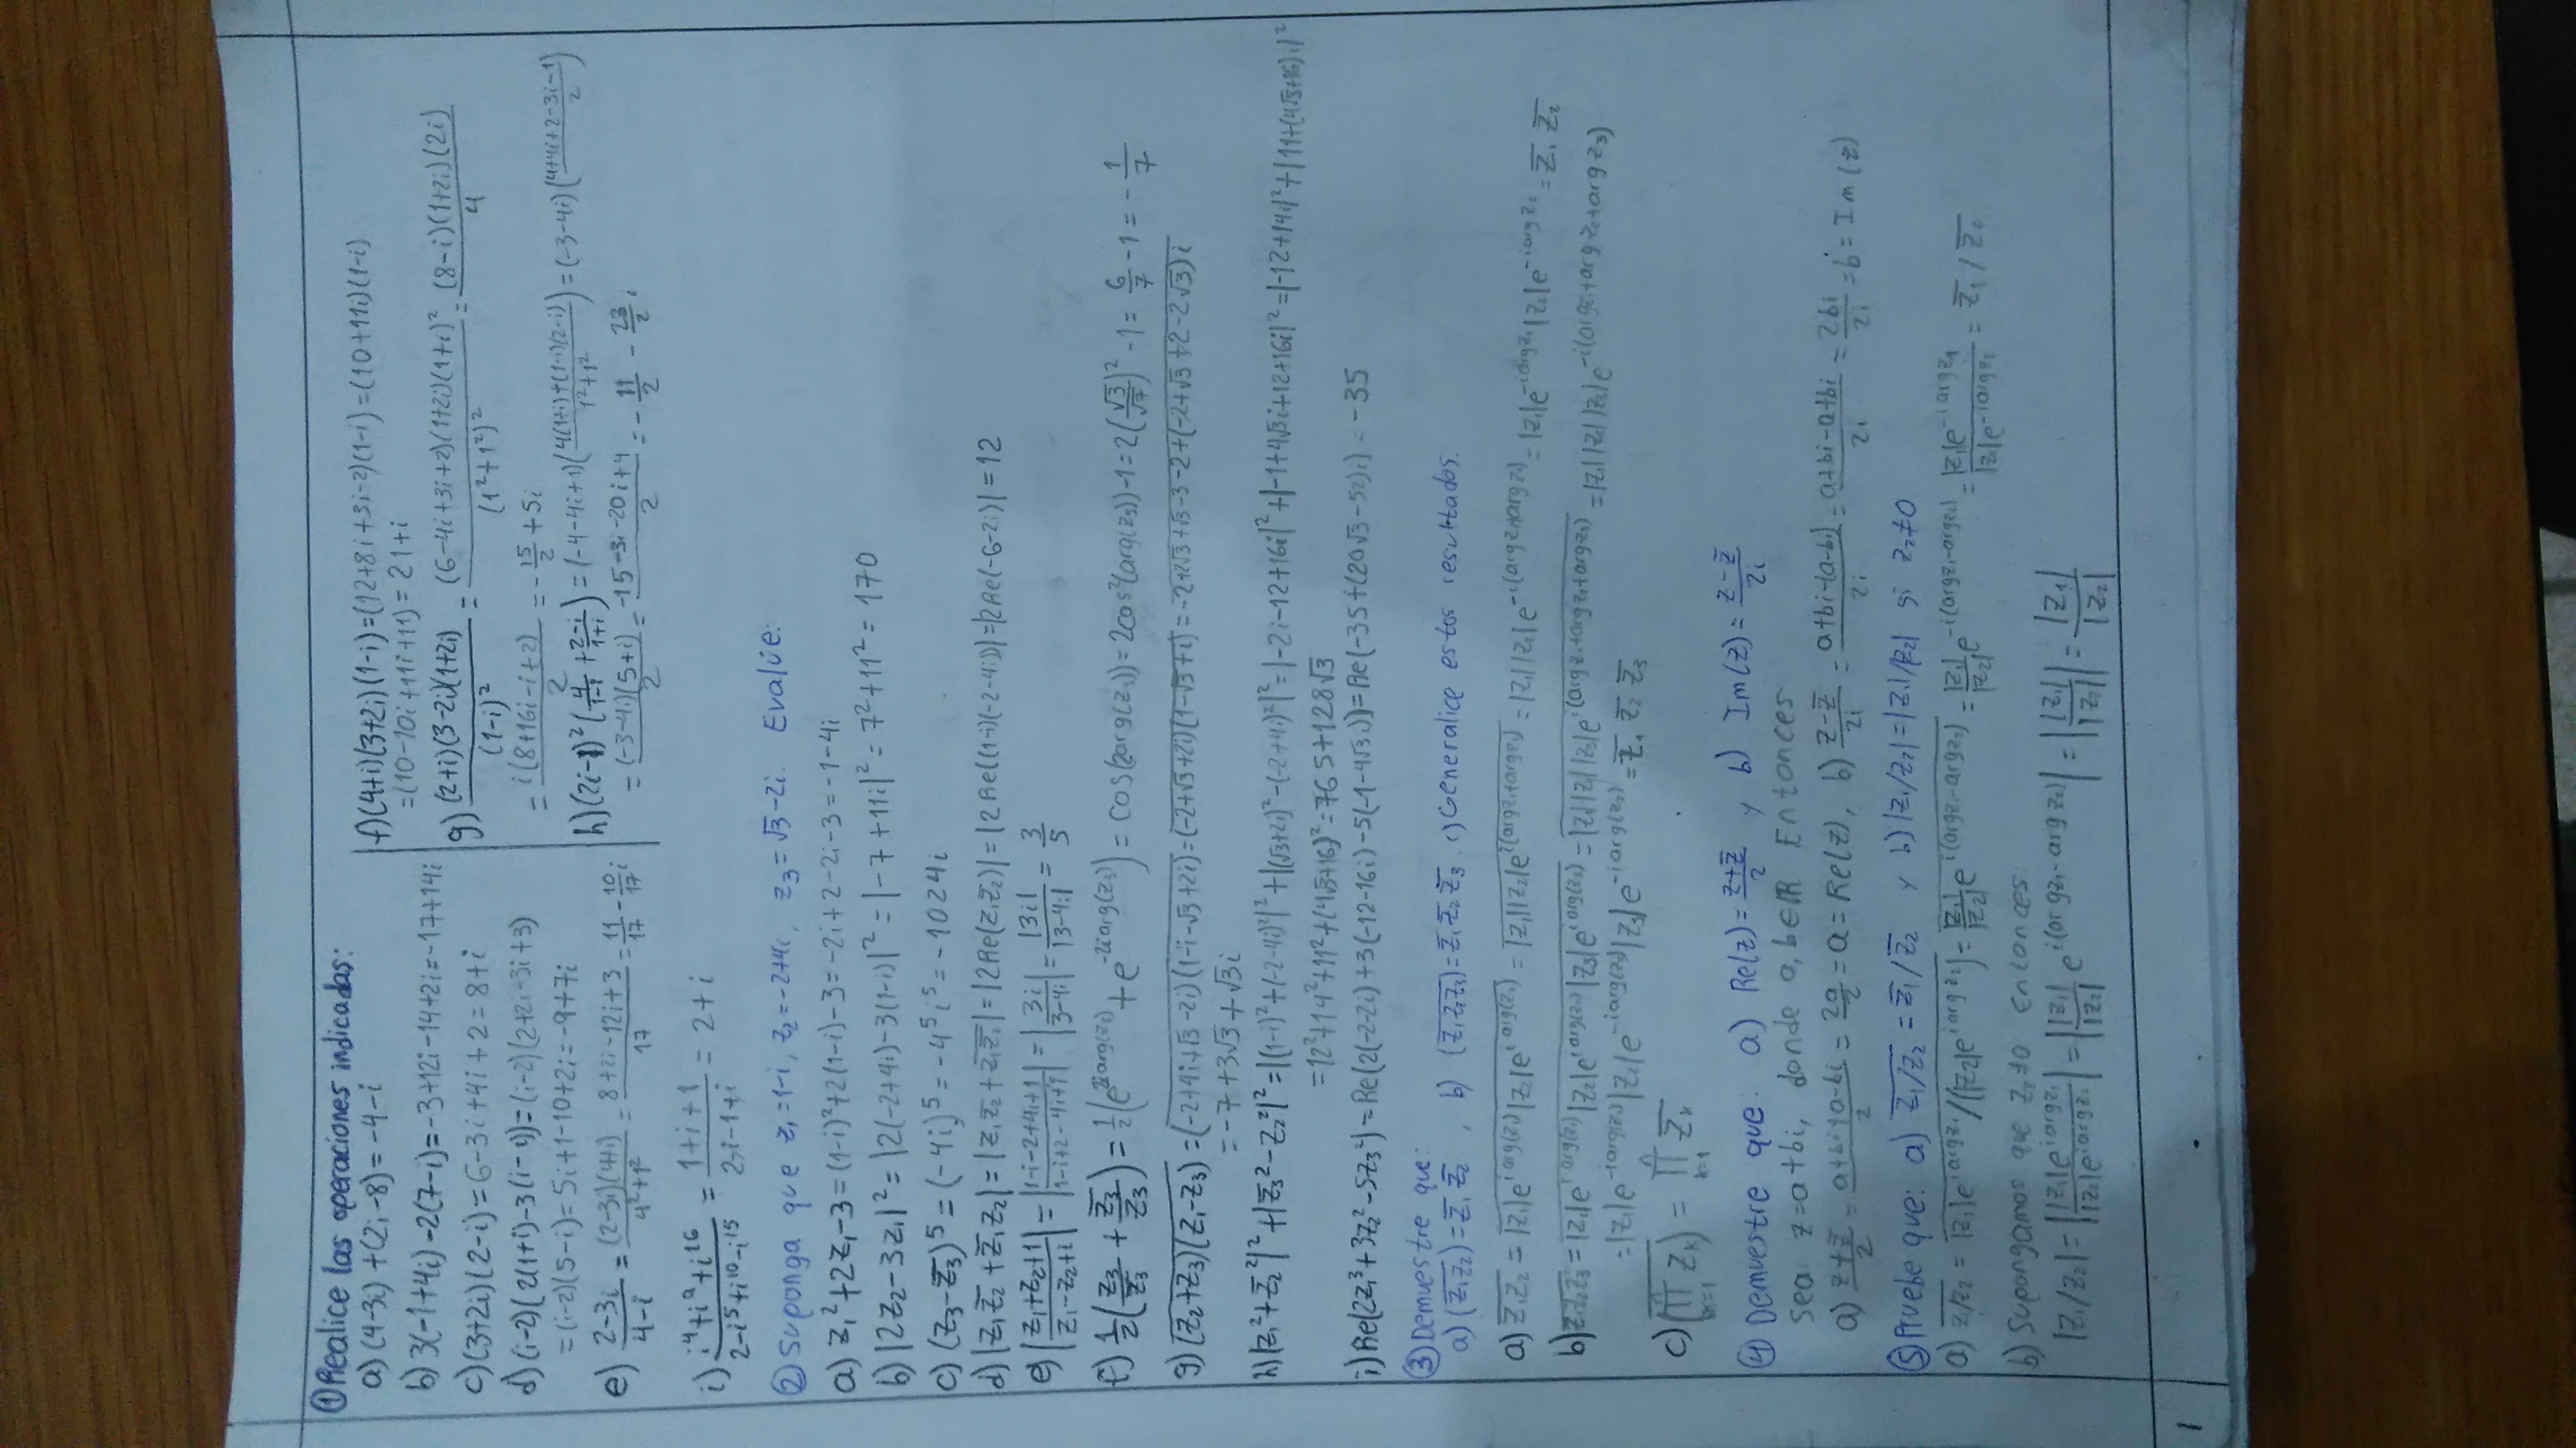 ① Realice las operaciones indicadas:
a) (4-3i)+(2i-8)=-4-i
b) 3(-1+4i)-2(7-i)=-3+12i-14+2i=-17+14i
c) (3+2i)(2-i)=6-3i+4i+2=8+i
d) (i-2)(2(1+i)-3(i-1))=(i-2)(2+2i-3i+3)
=(i-2)(5-i)=5i+1-10+2i=-9+7i
e) \frac{2-3i}{4-i}=\frac{(2-3i)(4+i)}{4²+1²}=\frac{8+2i-12i+3}{17}=\frac{11}{17}-\frac{10}{17}i
f) (4+i)(3+2i)(1-i)=(12+8i+3i-2)(1-i)=(10+11i)(1-i)
=(10-10i+11i+11)=21+i
g) \frac{(2+i)(3-2i)(1+2i)}{(1-i)²}=\frac{(6-4i+3i+2)(1+2i)(1+i)²}{(1²+1²)²}=\frac{(8-i)(1+2i)(2i)}{4}
=\frac{i(8+16i-i+2)}{2}=-\frac{15}{2}+5i
h) (2i-1)²(\frac{4}{1-i}+\frac{2-i}{1+i})=(-4-4i+1)(\frac{4(1+i)+(1-i)(2-i)}{1²+1²})=(-3-4i)(\frac{4+4i+2-3i-1}{2})
=\frac{(-3-4i)(5+i)}{2}=\frac{-15-3i-20i+4}{2}=-\frac{11}{2}-\frac{23}{2}i
i) \frac{i⁴+i⁹+i¹⁶}{2-i⁵+i¹⁰-i¹⁵}=\frac{1+i+1}{2-i-1+i}=2+i
② Suponga que z₁=1-i, z₂=-2+4i, z₃=√3-2i. Evalúe:
a) z₁²+2z₁-3=(1-i)²+2(1-i)-3=-2i+2-2i-3=-1-4i
b) |2z₂-3z₁|²=|2(-2+4i)-3(1-i)|²=|-7+11i|²=7²+11²=170
c) (z₃-\overline{z₃})⁵=(-4i)⁵=-4⁵i⁵=-1024i
d) |z₁\overline{z₂}+\overline{z₁}z₂|=|z₁\overline{z₂}+\overline{z₁\overline{z₂}}|=|2Re(z₁\overline{z₂})|=|2Re((1-i)(-2-4i))|=|2Re(-6-2i)|=12
e) |\frac{z₁+z₂+1}{z₁-z₂+i}|=|\frac{1-i-2+4i+1}{1-i+2-4i+i}|=|\frac{3i}{3-4i}|=\frac{|3i|}{|3-4i|}=\frac{3}{5}
f) \frac{1}{2}(\frac{z₃}{\overline{z₃}}+\frac{\overline{z₃}}{z₃})=\frac{1}{2}(e^{2iarg(z₃)}+e^{-2iarg(z₃)})=cos(2arg(z₃))=2cos²(arg(z₃))-1=2(\frac{√3}{√7})²-1=\frac{6}{7}-1=-\frac{1}{7}
g) \overline{(z₂+z₃)(z₁-z₃)}=\overline{(-2+4i+√3-2i)(1-i-√3+2i)}=\overline{(-2+√3+2i)(1-√3+i)}=\overline{-2+2√3+√3-3-2+(-2+√3+2-2√3)i}
=-7+3√3+√3i
h) |z₁²+\overline{z₂}²|²+|\overline{z₃}²-z₂²|²=|(1-i)²+(-2-4i)²|²+|(√3+2i)²-(-2+4i)²|²=|-2i-12+16i|²+|-1+4√3i+12+16i|²=|-12+14i|²+|11+(4√3+16)i|²
=12²+14²+11²+(4√3+16)²=765+128√3
i) Re(2z₁³+3z₂²-5z₃²)=Re(2(-2-2i)+3(-12-16i)-5(-1-4√3i))=Re(-35+(20√3-52)i)=-35
③ Demuestre que:
a) (\overline{z₁z₂})=\overline{z₁} \overline{z₂}, b) (\overline{z₁z₂z₃})=\overline{z₁} \overline{z₂} \overline{z₃}. c) Generalice estos resultados.
a) \overline{z₁z₂}=\overline{|z₁|e^{iarg(z₁)}|z₂|e^{iarg(z₂)}}=\overline{|z₁||z₂|e^{i(argz₁+argz₂)}}=|z₁||z₂|e^{-i(argz₁+argz₂)}=|z₁|e^{-iargz₁}|z₂|e^{-iargz₂}=\overline{z₁} \overline{z₂}
b) \overline{z₁z₂z₃}=\overline{|z₁|e^{iarg(z₁)}|z₂|e^{iarg(z₂)}|z₃|e^{iarg(z₃)}}=\overline{|z₁||z₂||z₃|e^{i(argz₁+argz₂+argz₃)}}=|z₁||z₂||z₃|e^{-i(argz₁+argz₂+argz₃)}
=|z₁|e^{-iarg(z₁)}|z₂|e^{-iarg(z₂)}|z₃|e^{-iarg(z₃)}=\overline{z₁} \overline{z₂} \overline{z₃}
c) \overline{(∏_{k=1}^{n} z_k)}=∏_{k=1}^{n} \overline{z_k}
④ Demuestre que: a) Re(z)=\frac{z+\overline{z}}{2} y b) Im(z)=\frac{z-\overline{z}}{2i}
Sea z=a+bi, donde a,b∈ℝ Entonces
a) \frac{z+\overline{z}}{2}=\frac{a+bi+a-bi}{2}=\frac{2a}{2}=a=Re(z), b) \frac{z-\overline{z}}{2i}=\frac{a+bi-(a-bi)}{2i}=\frac{a+bi-a+bi}{2i}=\frac{2bi}{2i}=b=Im(z)
⑤ Pruebe que: a) \overline{z₁/z₂}=\overline{z₁}/\overline{z₂} y b) |z₁/z₂|=|z₁|/|z₂| si z₂≠0
a) \overline{z₁/z₂}=\overline{|z₁|e^{iargz₁}/(|z₂|e^{iargz₂})}=\overline{\frac{|z₁|}{|z₂|}e^{i(argz₁-argz₂)}}=\frac{|z₁|}{|z₂|}e^{-i(argz₁-argz₂)}=\frac{|z₁|e^{-iargz₁}}{|z₂|e^{-iargz₂}}=\overline{z₁}/\overline{z₂}
b) Supongamos que z₂≠0 Entonces:
|z₁/z₂|=|\frac{|z₁|e^{iargz₁}}{|z₂|e^{iargz₂}}|=|\frac{|z₁|}{|z₂|}e^{i(argz₁-argz₂)}|=|\frac{|z₁|}{|z₂|}|=\frac{|z₁|}{|z₂|}
1